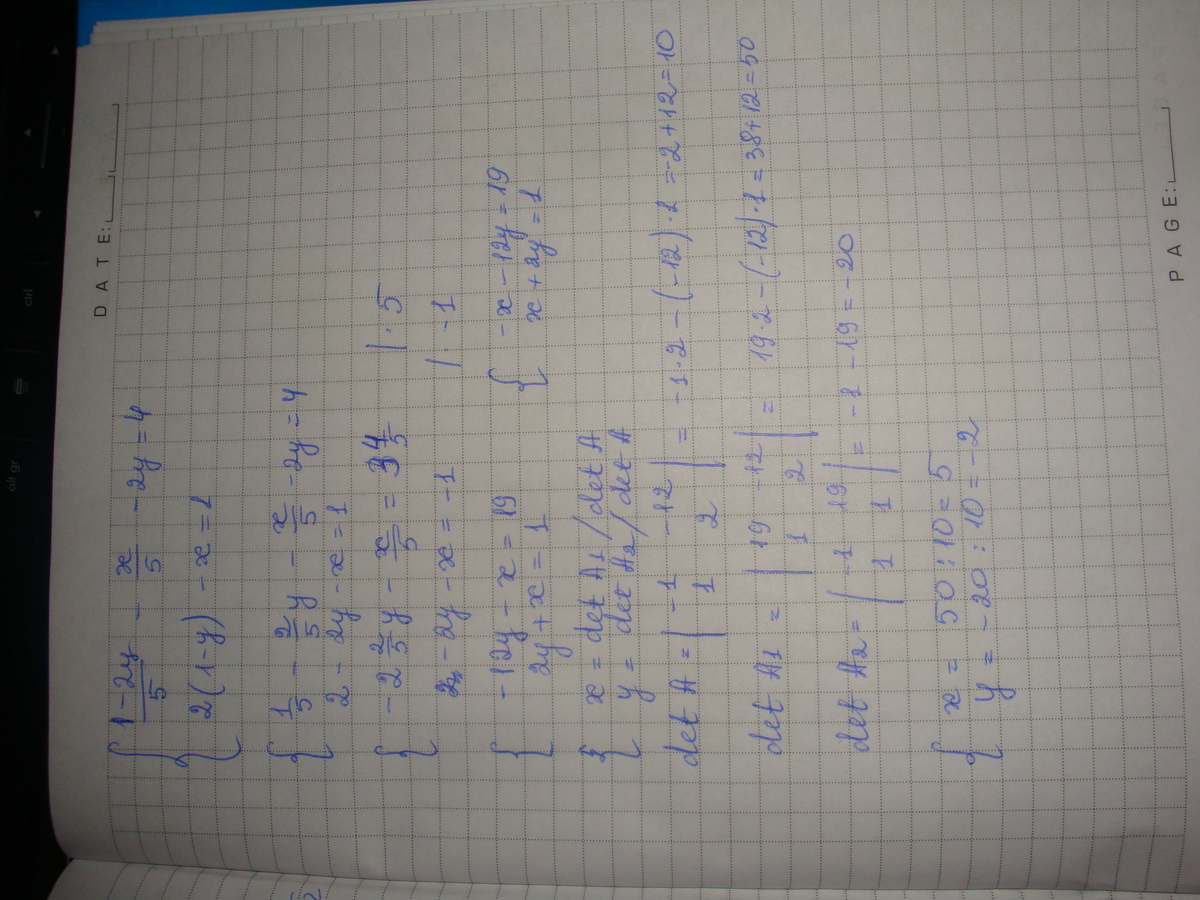 DATE:
{ (1-2y)/5 - x/5 - 2y = 4
2(1-y) - x = 1
{ 1/5 - 2/5 y - x/5 - 2y = 4
2 - 2y - x = 1
{ -2 2/5 y - x/5 = 3 4/5 | · 5
-2y - x = -1 | · -1
{ -12y - x = 19 { -x - 12y = 19
2y + x = 1 x + 2y = 1
{ x = det A1 / det A
y = det A2 / det A
det A = | -1 -12 | = -1·2 - (-12)·1 = -2+12 = 10
1 2
det A1 = | 19 -12 | = 19·2 - (-12)·1 = 38+12 = 50
1 2
det A2 = | -1 19 | = -1 - 19 = -20
1 1
{ x = 50 : 10 = 5
y = -20 : 10 = -2
PAGE:
alt gr
ctrl